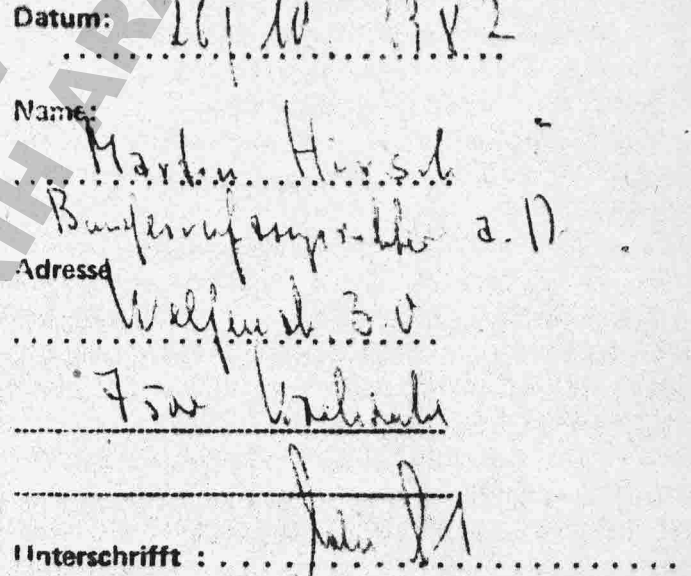 Datum: 26/10 1982
Name:
Martin Hirsch
Bundesverfassungsrichter a. D.
Adresse
Welfenstr. 30
7500 Karlsruhe
Unterschrifft :